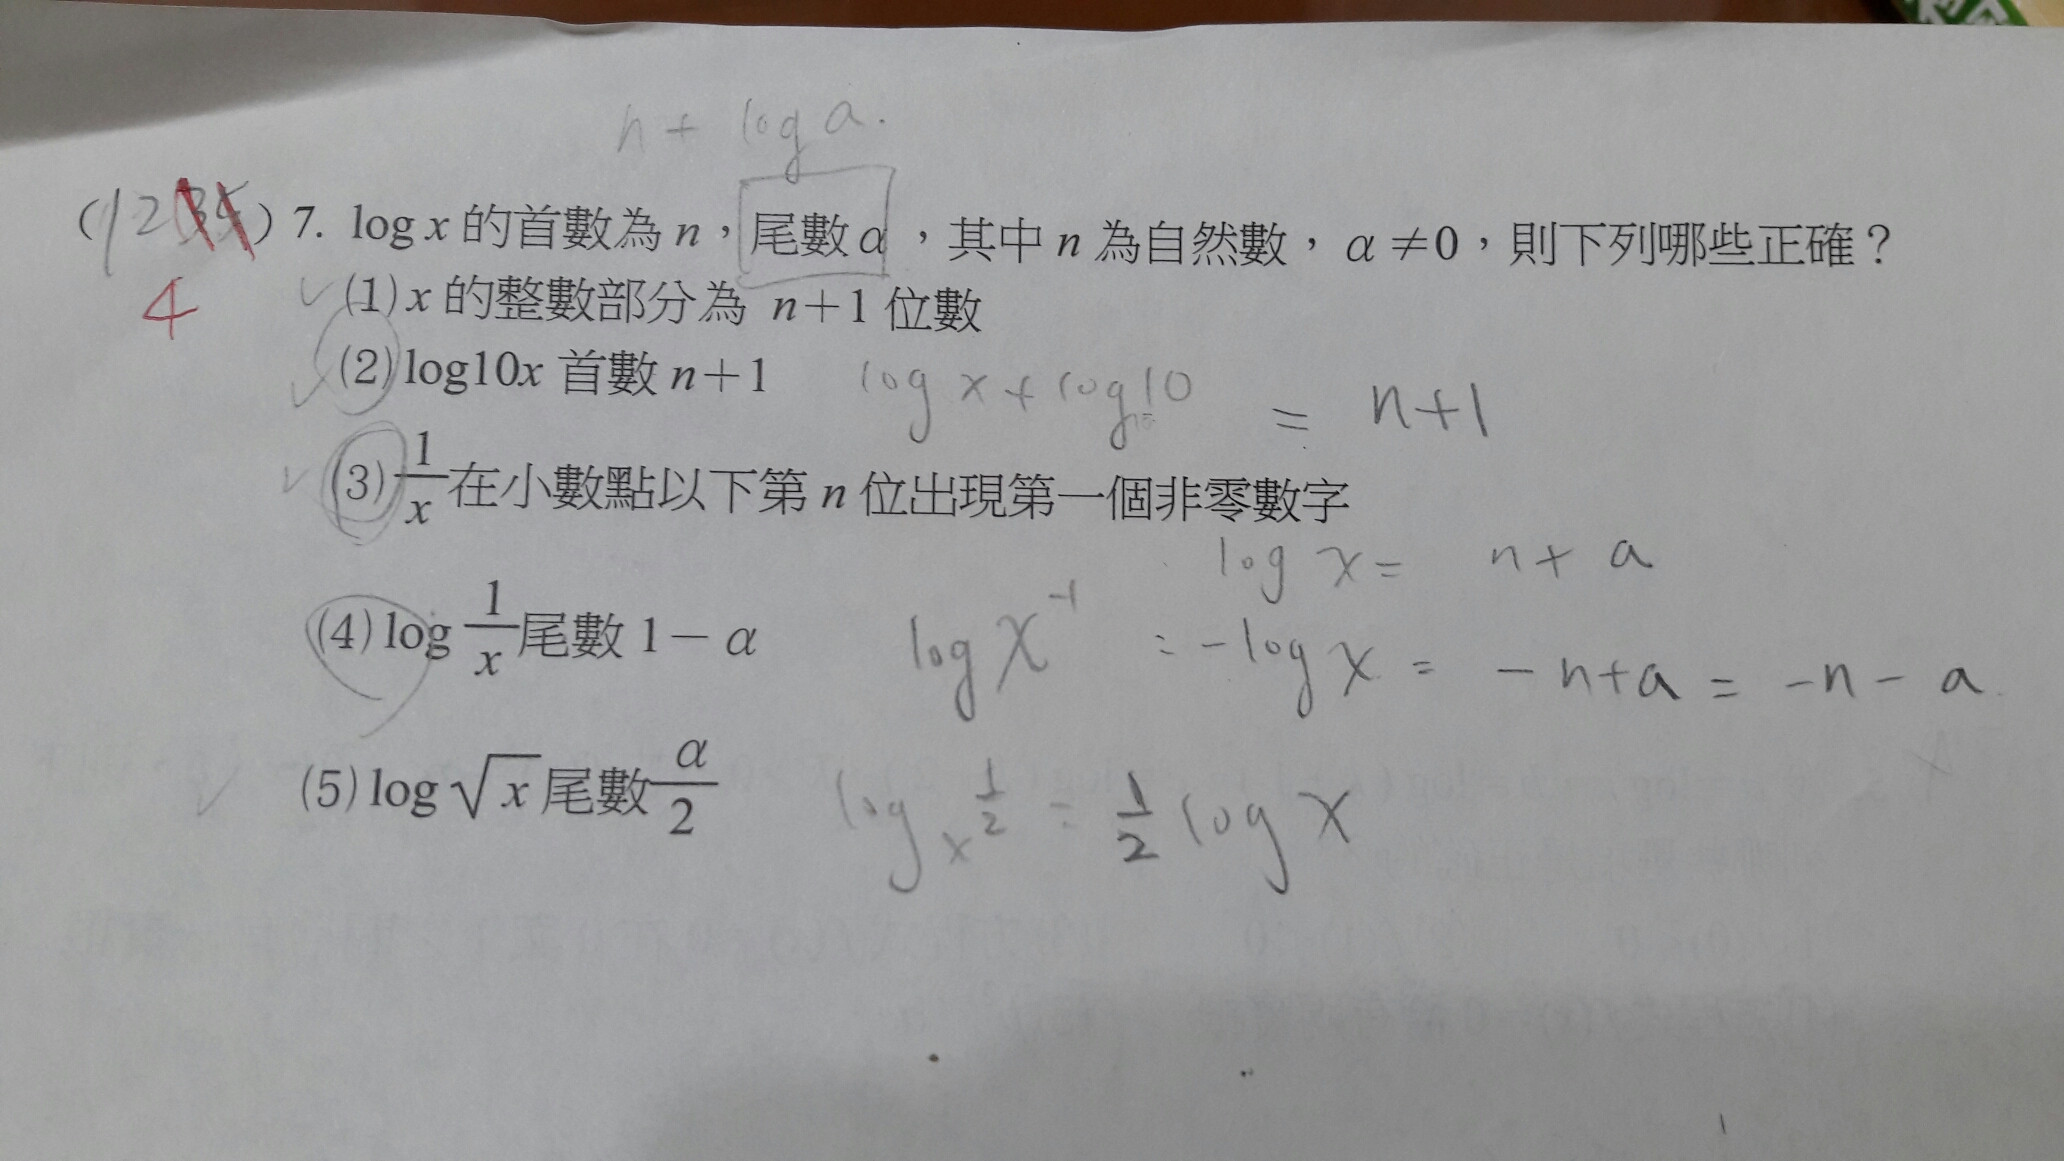 n + log a.
(1235) 7. log x 的首數為 n，尾數 α，其中 n 為自然數，α≠0，則下列哪些正確？
4
(1) x 的整數部分為 n+1 位數
(2) log10x 首數 n+1 log x + log10 = n+1
(3) 1/x 在小數點以下第 n 位出現第一個非零數字
log x = n + a
(4) log 1/x 尾數 1－α log x⁻¹ = -log x = -n+a = -n-a
(5) log √x 尾數 α/2 log x^1/2 = 1/2 log x